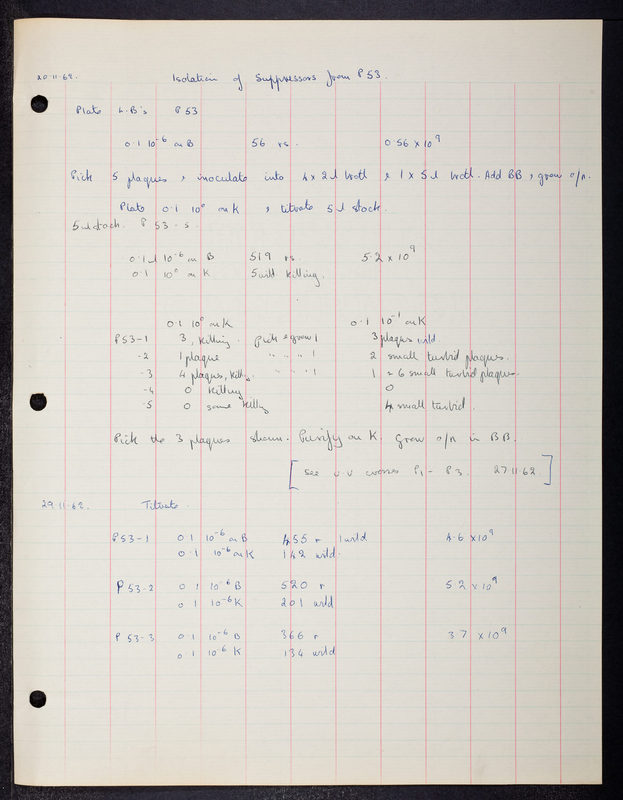 20.11.62. Isolation of Suppressors from P53.
Plate L.B's P53
0.1 10⁻⁶ on B 56 rs. 0.56 × 10⁹
Pick 5 plaques, inoculate into 4 × 2 l broth & 1 × 5 l broth. Add BB, grow o/n.
Plate 0.1 10⁰ on K, titrate 5 l stock.
5 stock. P 53-5.
0.1 10⁻⁶ on B 519 rs. 5.2 × 10⁹
0.1 10⁰ on K 5 wild killing.
0.1 10⁰ on K 0.1 10⁻¹ on K
P53-1 3, killing. Pick & grow 1 3 plaques wild
-2 1 plaque " " " 1 2 small turbid plaques.
-3 4 plaques, killing. " " " 1 1 + 6 small turbid plaques.
-4 0 killing 0
-5 0 some killing 4 small turbid.
Pick the 3 plaques shown. Purify on K. Grow o/n in BB.
[See U.V crosses P1 - P3. 27.11.62.]
29.11.62. Titrate.
P53-1 0.1 10⁻⁶ on B 455 r 1 wild 4.6 × 10⁹
0.1 10⁻⁶ on K 142 wild.
P53-2 0.1 10⁻⁶ B 520 r 5.2 × 10⁹
0.1 10⁻⁶ K 201 wild
P53-3 0.1 10⁻⁶ B 366 r 3.7 × 10⁹
0.1 10⁻⁶ K 134 wild